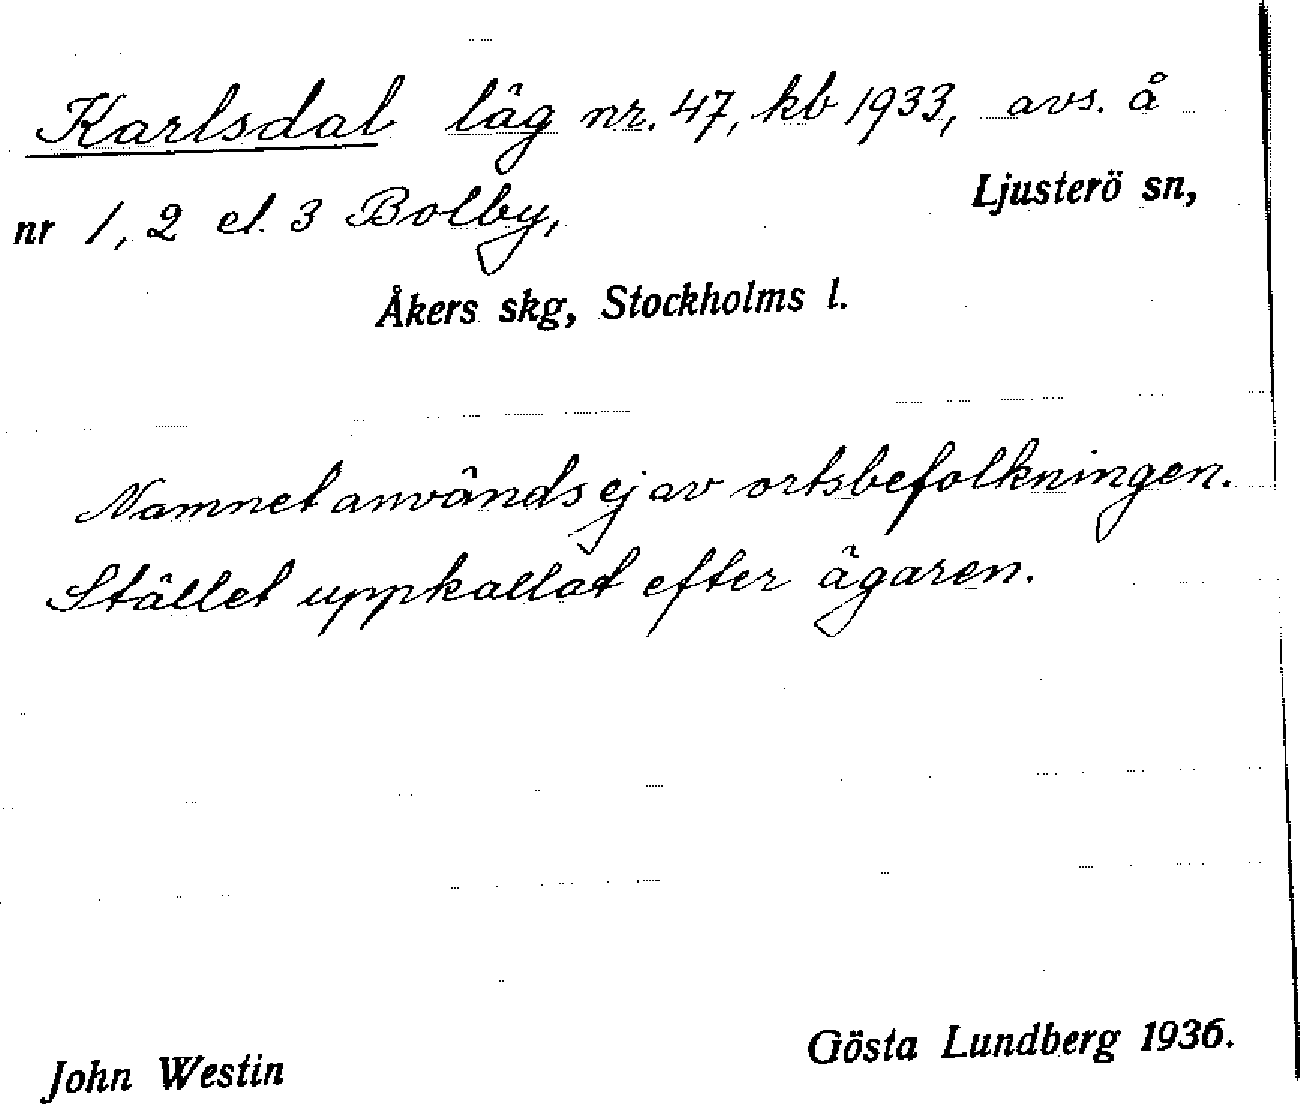 Karlsdal läg nr. 47, kb 1933, avs. å
Ljusterö sn,
nr 1, 2 el. 3 Bolby,
Åkers skg, Stockholms l.
Namnet används ej av ortsbefolkningen.
Stället uppkallat efter ägaren.
John Westin
Gösta Lundberg 1936.